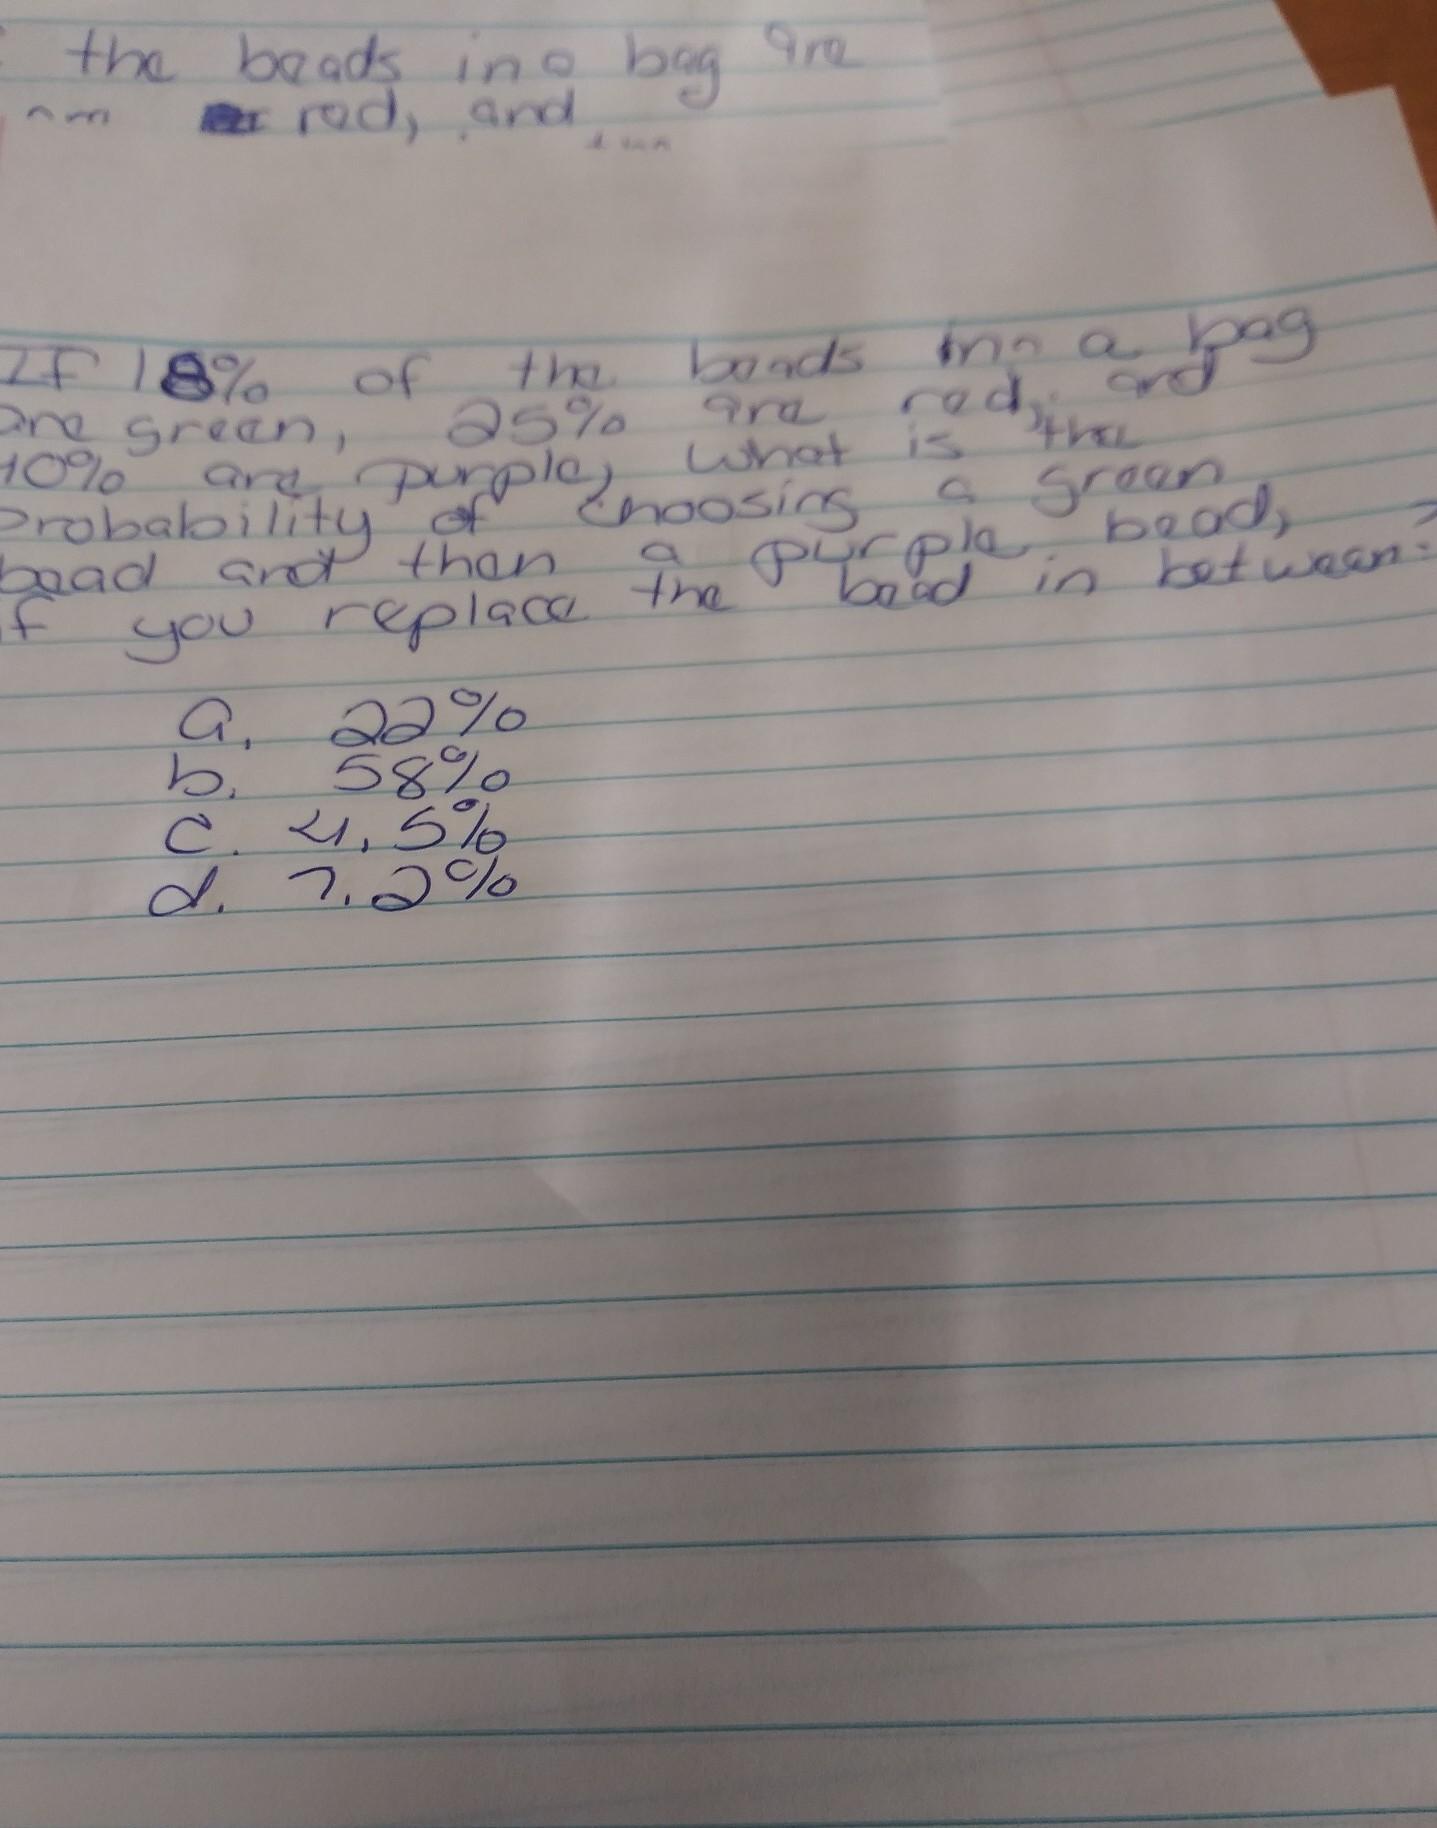 the beads in a bag are
red, and
If 18% of the beads in a bag
are green, 25% are red, and
10% are purple, what is the
probability of choosing a green
bead and then a purple bead,
if you replace the bead in between?
a. 22%
b. 58%
c. 4.5%
d. 7.2%